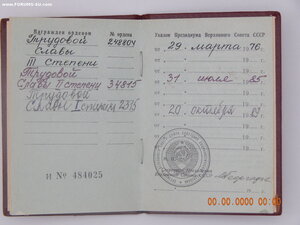 www.FORUMS-su.com
Награжден орденом
№ ордена
Трудовой
248804
Славы
III степени
Трудовой
Славы II степени 34815
Трудовой
Славы I степени 2376
И № 484025
Указом Президиума Верховного Совета СССР
от 29 марта 1976 г.
от 31 июля 1985 г.
от 20 октября 19 г.
от 19 г.
от 19 г.
00.00.0000 00:00